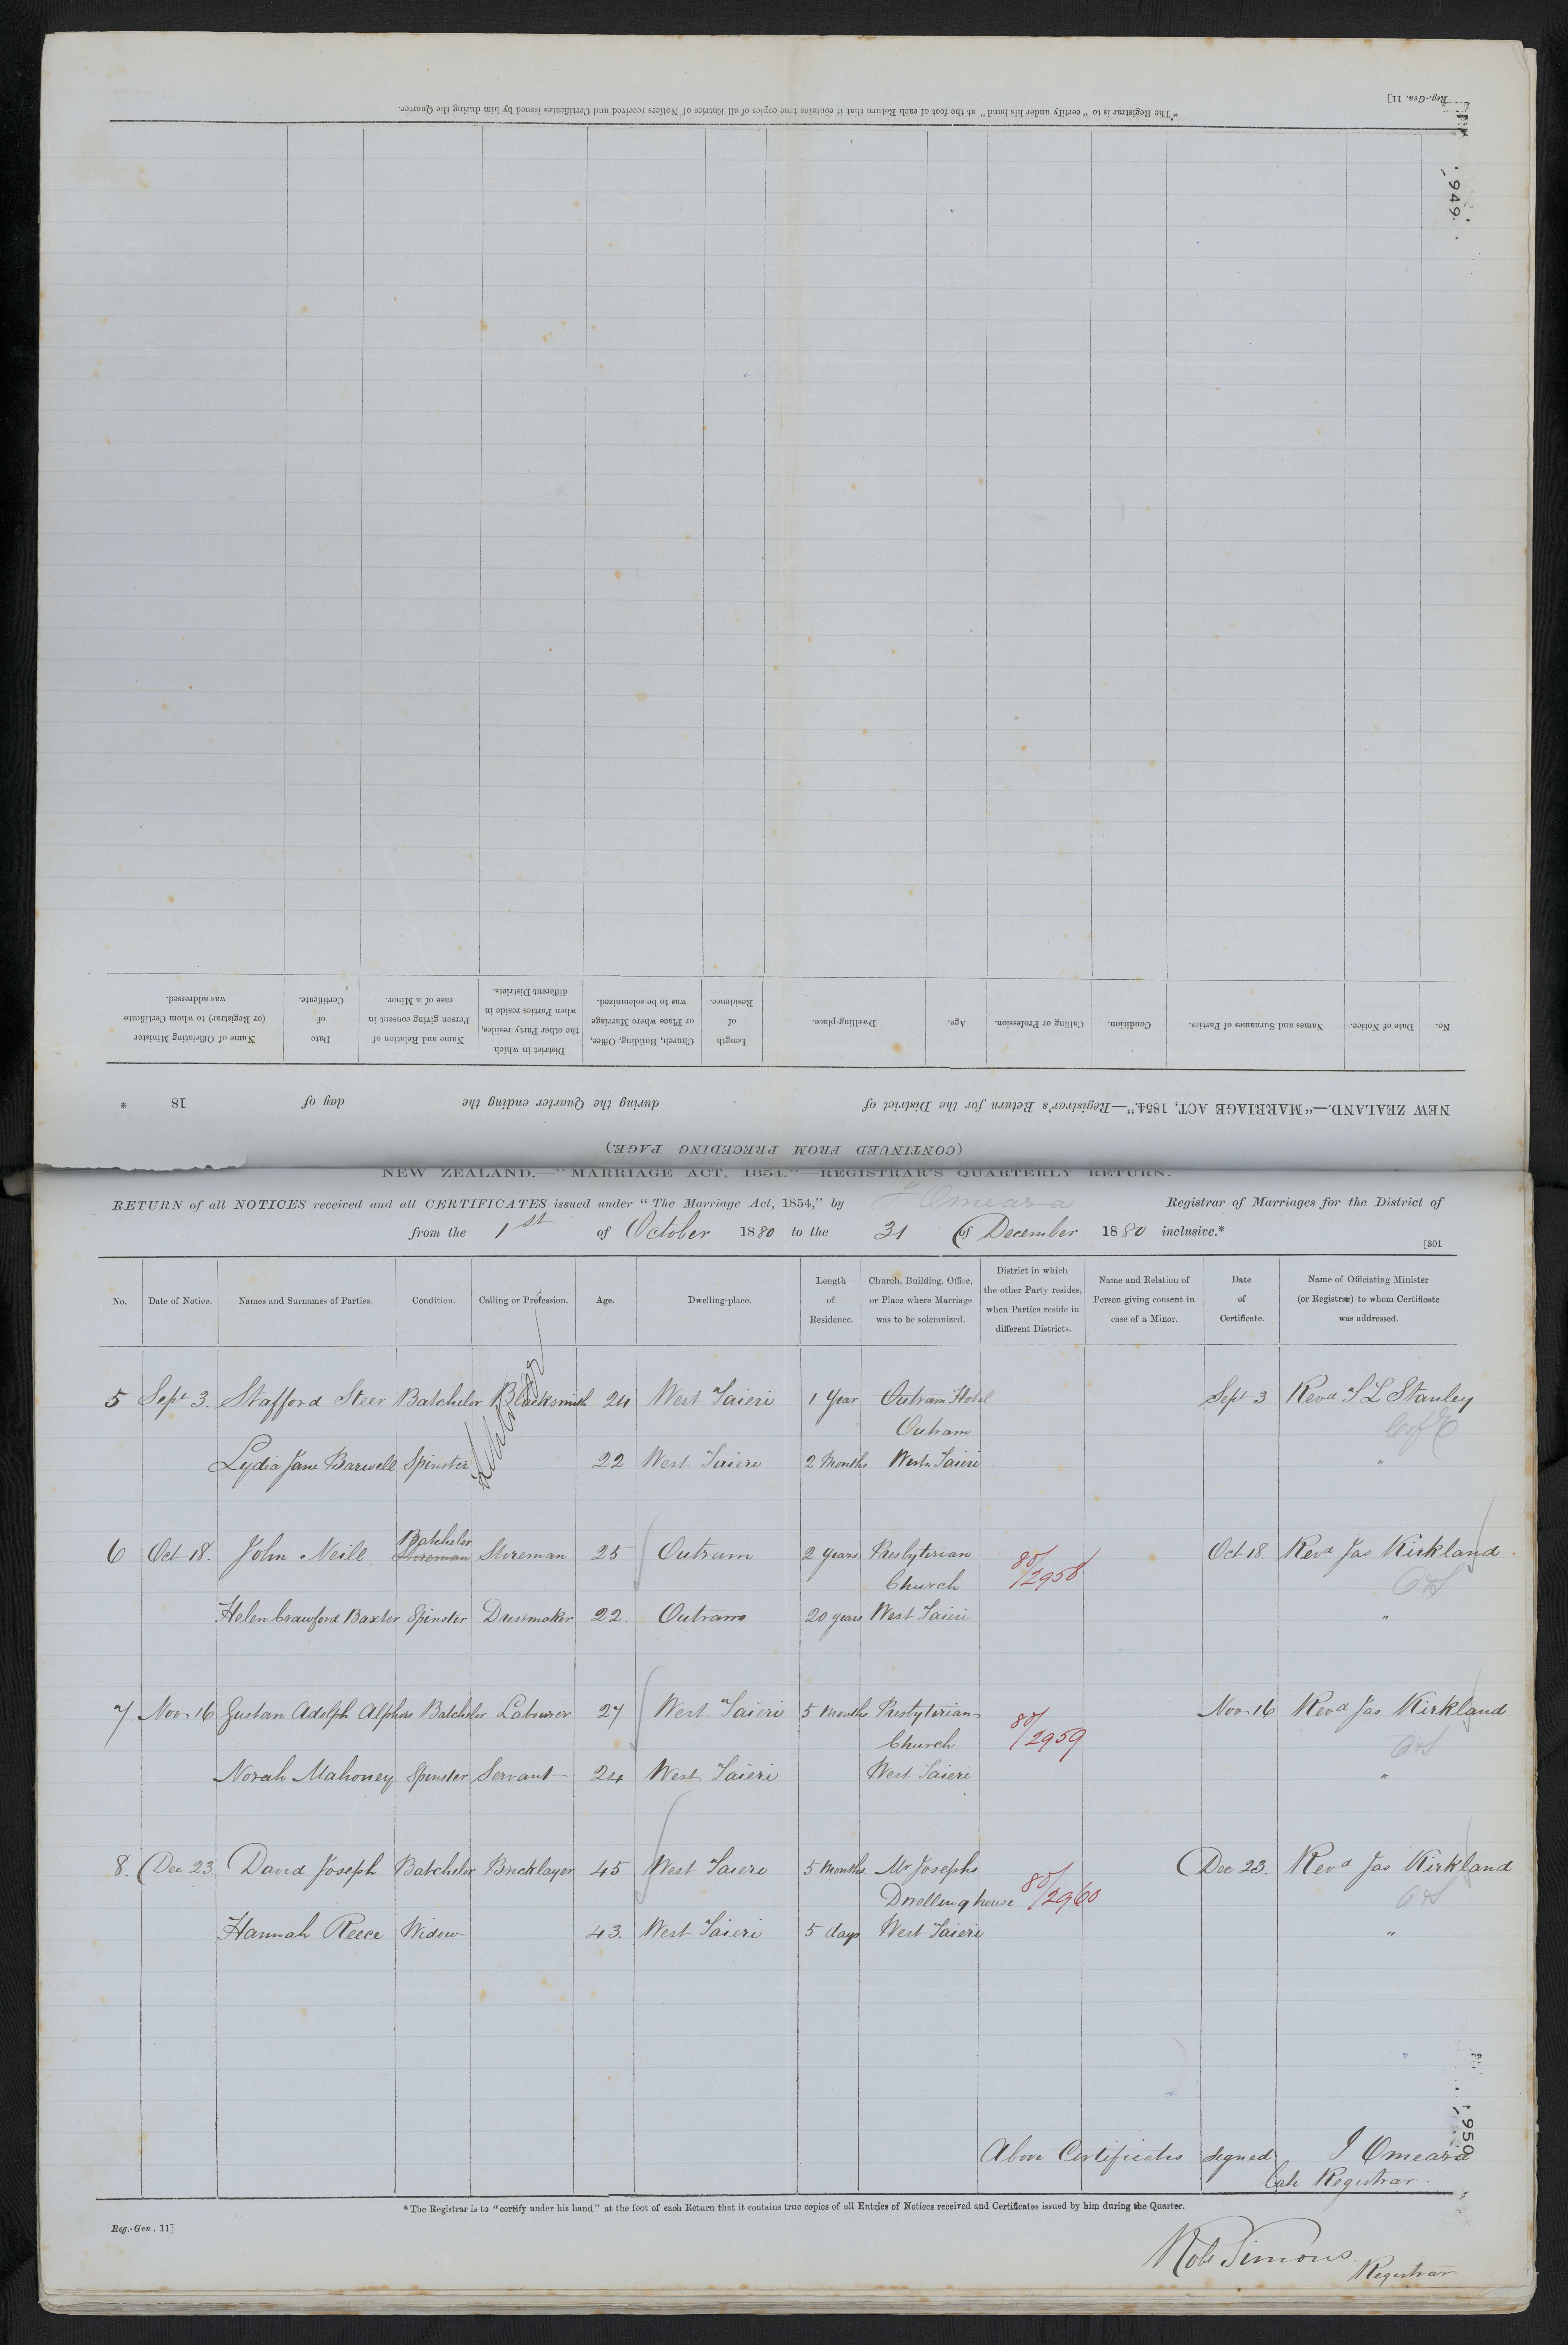 *The Registrar is to "certify under his hand" at the foot of each Return that it contains true copies of all Entries of Notices received and Certificates issued by him during the Quarter.
Reg.-Gen. 11]
949
No. Date of Notice. Names and Surnames of Parties. Condition. Calling or Profession. Age. Dwelling-place. Length of Residence. Church, Building, Office, or Place where Marriage was to be solemnized. District in which the other Party resides, when Parties reside in different Districts. Name and Relation of Person giving consent in case of a Minor. Date of Certificate. Name of Officiating Minister (or Registrar) to whom Certificate was addressed.
NEW ZEALAND.—"MARRIAGE ACT, 1854."—Registrar's Return for the District of during the Quarter ending the day of 18
(CONTINUED FROM PRECEDING PAGE.)
NEW ZEALAND.—"MARRIAGE ACT, 1854."—REGISTRAR'S QUARTERLY RETURN.
RETURN of all NOTICES received and all CERTIFICATES issued under "The Marriage Act, 1854," by J Omeara Registrar of Marriages for the District of
from the 1st of October 1880 to the 31 of December 1880 inclusive.*
[301
No. Date of Notice. Names and Surnames of Parties. Condition. Calling or Profession. Age. Dwelling-place. Length of Residence. Church, Building, Office, or Place where Marriage was to be solemnized. District in which the other Party resides, when Parties reside in different Districts. Name and Relation of Person giving consent in case of a Minor. Date of Certificate. Name of Officiating Minister (or Registrar) to whom Certificate was addressed.
5 Sept 3. Stafford Steer Batchelor Blacksmith 24 West Taieri 1 Year Outram Hotel Sept 3 Revd T L Stanley
Outram C of E
Lydia Jane Barwell Spinster 22 West Taieri 2 Months West Taieri "
Batchelor
6 Oct 18. John Neill Storeman Storeman 25 Outram 2 years Presbyterian 80/2958 Oct 18. Revd Jas Kirkland
Church
Helen Crawford Baxter Spinster Dressmaker 22. Outram 20 years West Taieri "
7 Nov 16 Gustan Adolph Alphors Batchelor Labourer 27 West Taieri 5 Months Presbyterian 80/2959 Nov 16 Revd Jas Kirkland
Church
Norah Mahoney Spinster Servant 24 West Taieri West Taieri "
8. Dec 23 David Joseph Batchelor Bricklayer 45 West Taieri 5 Months Mr Josephs 80/2960 Dec 23. Revd Jas Kirkland
Dwelling house
Hannah Reece Widow 43. West Taieri 5 days West Taieri "
950
Above Certificates signed J Omeara
Late Registrar.
*The Registrar is to "certify under his hand" at the foot of each Return that it contains true copies of all Entries of Notices received and Certificates issued by him during the Quarter.
Reg.-Gen. 11]
Robt Simons.
Registrar